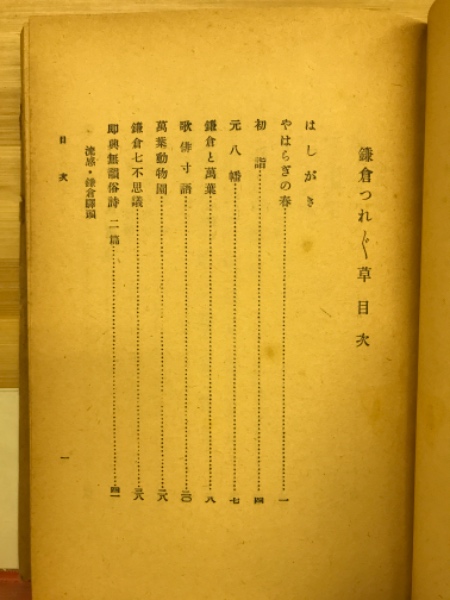 鎌倉つれ〴〵草目次
はしがき
やはらぎの春……一
初詣……四
元八幡……七
鎌倉と萬葉……八
歌俳寸語……二〇
萬葉動物園……二八
鎌倉七不思議……三八
即興無韻俗詩二篇……四一
流感・鎌倉驛頭
目次
一